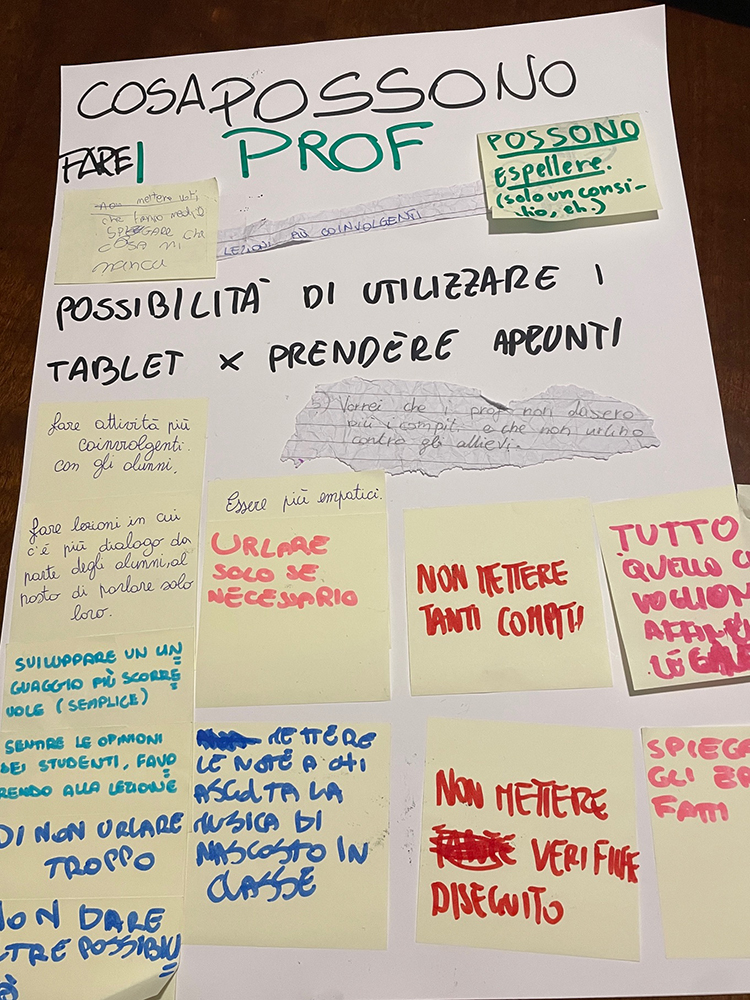 COSA POSSONO
FARE I PROF
POSSONO
Espellere.
(solo un consi-
glio, eh.)
non mettere voti
che fanno media
SPIEGARE CHE
COSA MI
manca
LEZIONI PIÙ COINVOLGENTI
POSSIBILITÀ DI UTILIZZARE I
TABLET X PRENDÈRE APPUNTI
5) Vorrei che i prof non dassero
più i compiti e che non urlino
contro gli allievi.
fare attività più
coinvolgenti
con gli alunni.
fare lezioni in cui
c'è più dialogo da
parte degli alunni, al
posto di parlare solo
loro.
SVILUPPARE UN LIN
GUAGGIO PIÙ SCORRE
VOLE (SEMPLICE)
SENTIRE LE OPINIONI
DEI STUDENTI, FAVO
RENDO ALLA LEZIONE
DI NON URLARE
TROPPO
NON DARE
LTRE POSSIBILI
Essere più empatici.
URLARE
SOLO SE
NECESSARIO
METTERE
LE NOTE A CHI
ASCOLTA LA
MUSICA DI
NASCOSTO IN
CLASSE
NON METTERE
TANTI COMPITI
NON METTERE
VERIFICHE
DISEGUITO
TUTTO
QUELLO C
VOGLION
SPIEGA
GLI ER
FATTI